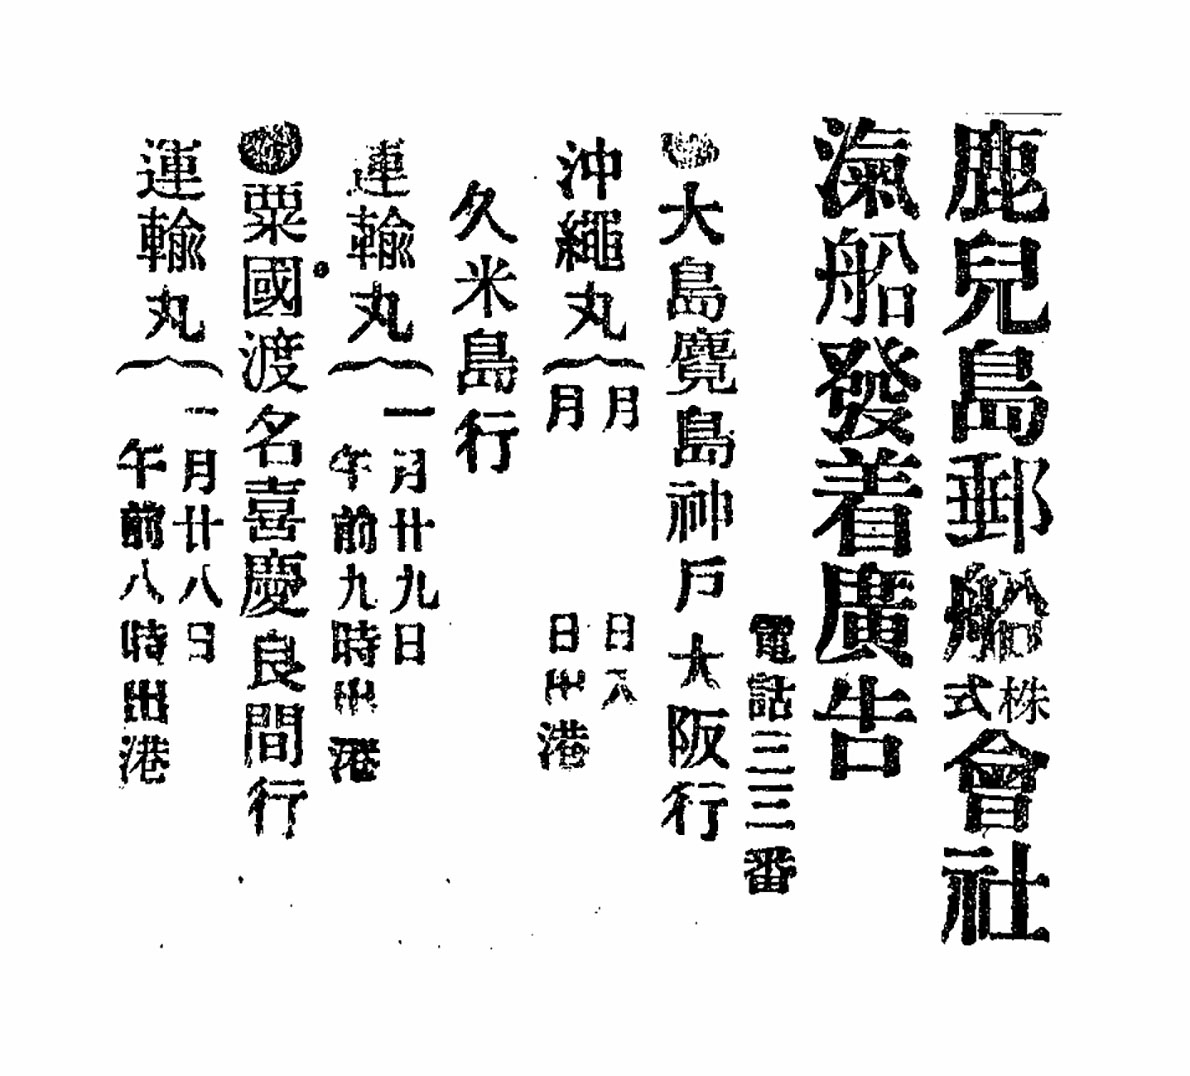 鹿兒島郵船株式會社
滊船發着廣告
電話三三番
●大島麑島神戸大阪行
沖繩丸
月 日入
月 日出港
久米島行
運輸丸
一月廿九日
午前九時出港
●粟國渡名喜慶良間行
運輸丸
一月廿八日
午前八時出港